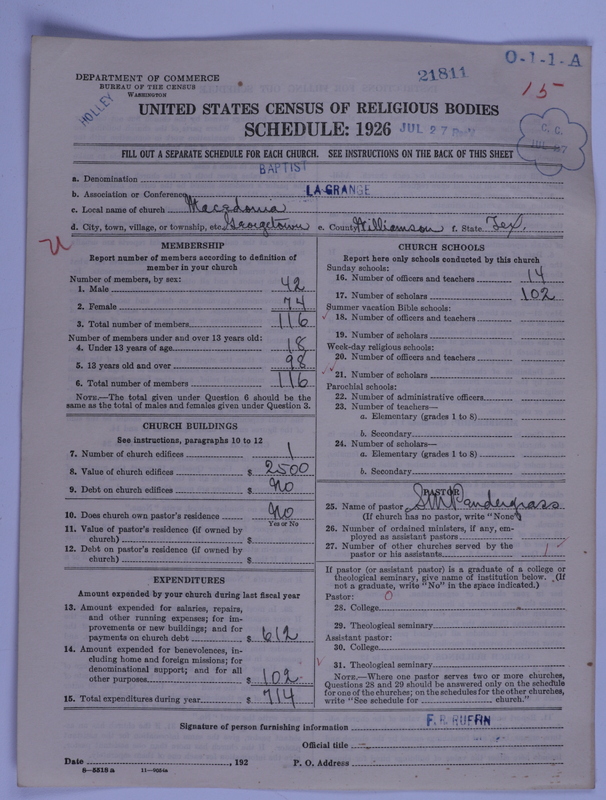 DEPARTMENT OF COMMERCE
BUREAU OF THE CENSUS
WASHINGTON
HOLLEY
21811
O-1-1-A
15
UNITED STATES CENSUS OF RELIGIOUS BODIES
SCHEDULE: 1926
JUL 27
C. C.
FILL OUT A SEPARATE SCHEDULE FOR EACH CHURCH. SEE INSTRUCTIONS ON THE BACK OF THIS SHEET
a. Denomination BAPTIST
b. Association or Conference LA GRANGE
c. Local name of church Macedonia
d. City, town, village, or township, etc. Georgetown e. County Williamson f. State Tex.
MEMBERSHIP
Report number of members according to definition of
member in your church
Number of members, by sex:
1. Male 42
2. Female 74
3. Total number of members 116
Number of members under and over 13 years old:
4. Under 13 years of age 18
5. 13 years old and over 98
6. Total number of members 116
NOTE.—The total given under Question 6 should be the
same as the total of males and females given under Question 3.
CHURCH BUILDINGS
See instructions, paragraphs 10 to 12
7. Number of church edifices 1
8. Value of church edifices $ 2500
9. Debt on church edifices $ No
10. Does church own pastor's residence? No
Yes or No
11. Value of pastor's residence (if owned by
church) $
12. Debt on pastor's residence (if owned by
church) $
EXPENDITURES
Amount expended by your church during last fiscal year
13. Amount expended for salaries, repairs,
and other running expenses; for im-
provements or new buildings; and for
payments on church debt $ 612
14. Amount expended for benevolences, in-
cluding home and foreign missions; for
denominational support; and for all
other purposes $ 102
15. Total expenditures during year $ 714
CHURCH SCHOOLS
Report here only schools conducted by this church
Sunday schools:
16. Number of officers and teachers 14
17. Number of scholars 102
Summer vacation Bible schools:
18. Number of officers and teachers
19. Number of scholars
Week-day religious schools:
20. Number of officers and teachers
21. Number of scholars
Parochial schools:
22. Number of administrative officers
23. Number of teachers—
a. Elementary (grades 1 to 8)
b. Secondary
24. Number of scholars—
a. Elementary (grades 1 to 8)
b. Secondary
PASTOR
25. Name of pastor S M Pandergrass
(If church has no pastor, write "None")
26. Number of ordained ministers, if any, em-
ployed as assistant pastors
27. Number of other churches served by the
pastor or his assistants 1
If pastor (or assistant pastor) is a graduate of a college or
theological seminary, give name of institution below. (If
not a graduate, write "No" in the space indicated.)
Pastor: O
28. College
29. Theological seminary
Assistant pastor:
30. College
31. Theological seminary
NOTE.—Where one pastor serves two or more churches,
Questions 28 and 29 should be answered only on the schedule
for one of the churches; on the schedules for the other churches,
write "See schedule for church."
Signature of person furnishing information F. R. RUFFIN
Official title
Date , 192 P. O. Address
8—5518a 11—9034a